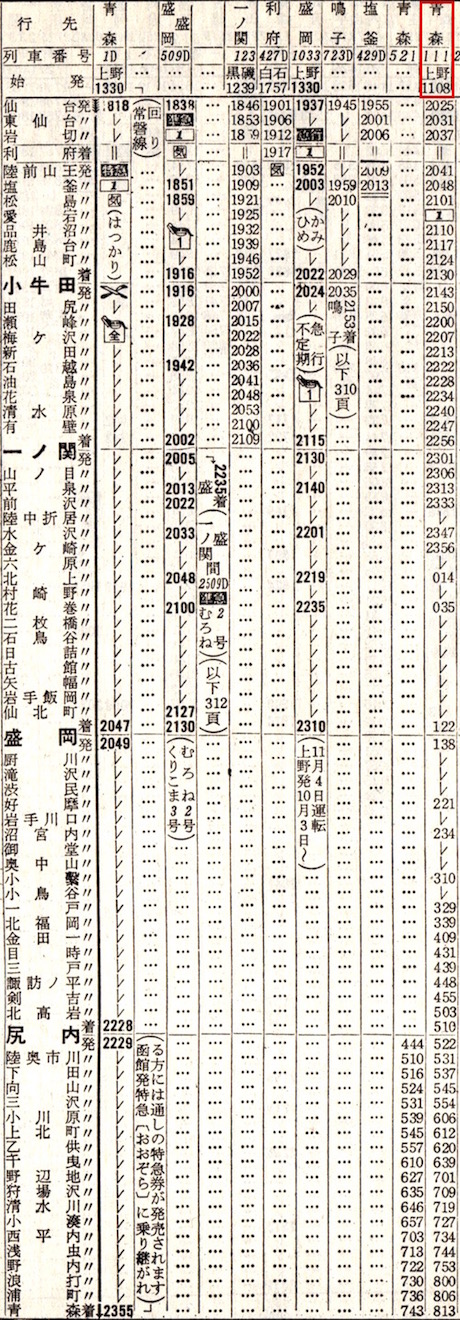 行先 青森 … 盛岡 盛 一ノ関 利府 盛岡 鳴子 塩釜 青森 青森
列車番号 1D … 509D … 123 427D 1033 723D 429D 521 111 2
始発 上野1330 … … … 黒磯1239 白石1757 上野1330 … … … 上野1108
仙台発 1818 1838 … 1846 1901 1937 1945 1955 … 2025
東仙台〃 レ 準急 … 1853 1906 レ レ 2001 … 2031
岩切〃 レ 1 … 1912 急行 レ 2006 … 2037
利府着 ‖ 気 … ‖ 1917 ‖ ‖ ‖ … ‖
陸前山王発 特急 レ … 1903 気 1952 レ 2009 … 2041
塩釜〃 1 1851 … 1909 … 2003 1959 2013 … 2048
松島〃 気 1859 … 1921 … レ 2010 … 2101
愛宕〃 レ … 1925 … レ … 1
品井沼〃 レ … 1932 … レ … 2110
鹿島台〃 1 … 1939 … レ … 2117
松山町〃 レ … 1946 … レ … 2124
小牛田着 1916 … 1952 … 2022 2029 … 2130
小牛田発 1916 … 2000 … 2024 2035 … 2143
田尻〃 レ … 2007 … 2150
瀬峰〃 全 1928 … 2015 … 2200
梅ケ沢〃 レ レ … 2022 … 2207
新田〃 レ レ … 2028 … 2213
石越〃 レ 1942 … 2036 … 2222
油島〃 レ レ … 2041 … 2228
花泉〃 レ レ … 2048 … 1 … 2234
清水原〃 レ レ … 2053 … レ … 2240
有壁〃 レ レ … 2100 … レ … 2247
一ノ関着 レ 2002 … 2109 … 2115 … 2256
一ノ関発 レ 2005 … 2130 … 2301
山ノ目〃 レ レ … レ … 2306
平泉〃 レ 2013 … 2140 … 2313
前沢〃 レ 2022 … レ … 2333
陸中折居〃 レ レ … レ … レ
水沢〃 レ 2033 … 2201 … 2347
金ケ崎〃 レ レ … レ … 2356
六原〃 レ レ … レ … レ
北上〃 レ 2048 … 2219 … 014
村崎野〃 レ レ … レ … レ
花巻〃 レ 2100 … 2235 … 035
二枚橋〃 レ レ … レ … レ
石鳥谷〃 レ レ … レ … レ
日詰〃 レ レ … レ … レ
古館〃 レ レ … レ … レ
矢幅〃 レ レ … レ … レ
岩手飯岡〃 レ レ … レ … レ
仙北町〃 レ 2127 … レ … レ
盛岡着 2047 2130 … 2310 … 122
盛岡発 2049 … 138
厨川〃 レ … レ
滝沢〃 レ … レ
渋民〃 レ … レ
好摩〃 レ … 221
岩手川口〃 レ … レ
沼宮内〃 レ … 234
御堂〃 レ … レ
奥中山〃 レ … レ
小繋〃 レ … 310
小鳥谷〃 レ … レ
一戸〃 レ … 329
北福岡〃 レ … 339
金田一〃 レ … 409
目時〃 レ … 431
三戸〃 レ … 439
諏訪ノ平〃 レ … 448
剣吉〃 レ … 455
北高岩〃 レ … 503
尻内着 2228 … 510
尻内発 2229 … 444 522
陸奥市川〃 レ … 510 531
下田〃 レ … 516 537
向山〃 レ … 524 545
三沢〃 レ … 531 554
小川原〃 レ … 539 606
上北町〃 レ … 545 612
乙供〃 レ … 557 620
千曳〃 レ … 610 639
野辺地〃 レ … 627 701
狩場沢〃 レ … 635 709
清水川〃 レ … 646 719
小湊〃 レ … 657 727
西平内〃 レ … 703 734
浅虫〃 レ … 713 744
野内〃 レ … 722 753
浪打〃 レ … 730 800
浦町〃 レ … 736 806
青森着 2355 … 743 813
(常磐線)回り
(はつかり)
(ひかみめ)
(不定期急行)
鳴子着2153
(以下310頁)
盛 2235着
(一ノ関 盛 間 2509D
準急
むろね2号)
(以下312頁)
(むろね2号 くりこま3号)
(11月4日運転 上野発10月3日〜)
函館発特急〔おおぞら〕に乗り継がれる方には通しの特急券が発売されます